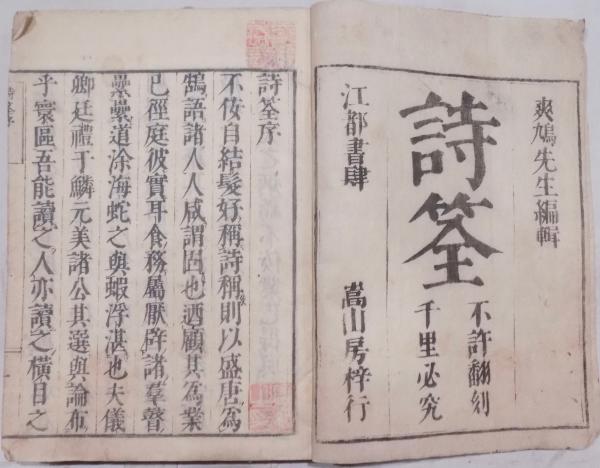 爽鳩先生編輯
詩筌
不許翻刻
千里必究
江都書肆
嵩山房梓行
詩筌序
不佞自結髮好稱詩稱則以盛唐爲
鵠語諸人人咸謂固也迺顧其爲業
已徑庭彼實耳食務屬厭辟諸羣瞽
纍纍道涂海蛇之與蝦浮湛也夫儀
卿廷禮于鱗元美諸公其選與論布
乎寰區吾能讀之人亦讀之橫目之